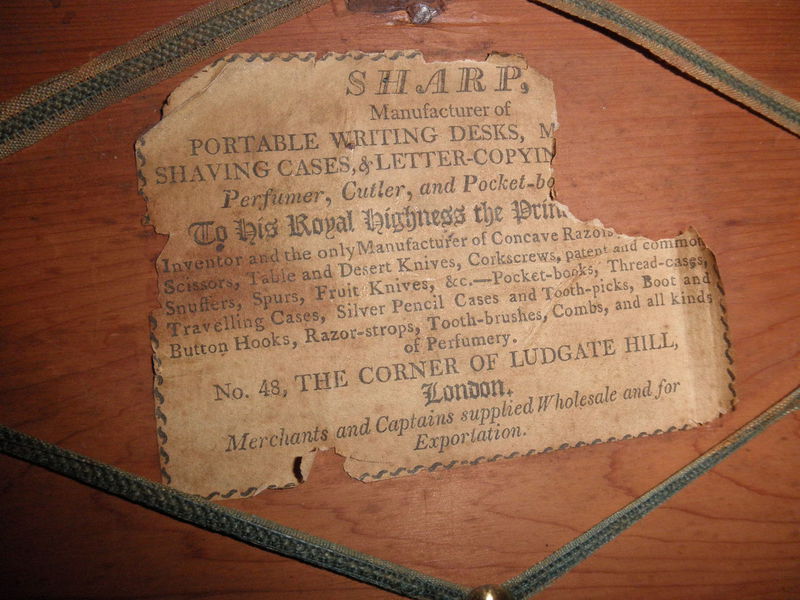 SHARP,
Manufacturer of
PORTABLE WRITING DESKS, M
SHAVING CASES, & LETTER-COPYIN
Perfumer, Cutler, and Pocket-bo
To His Royal Highness the Prin
Inventor and the only Manufacturer of Concave Razors,
Scissors, Table and Desert Knives, Corkscrews, patent and common
Snuffers, Spurs, Fruit Knives, &c.—Pocket-books, Thread-cases,
Travelling Cases, Silver Pencil Cases and Tooth-picks, Boot and
Button Hooks, Razor-strops, Tooth-brushes, Combs, and all kinds
of Perfumery.
No. 48, THE CORNER OF LUDGATE HILL,
London.
Merchants and Captains supplied Wholesale and for
Exportation.